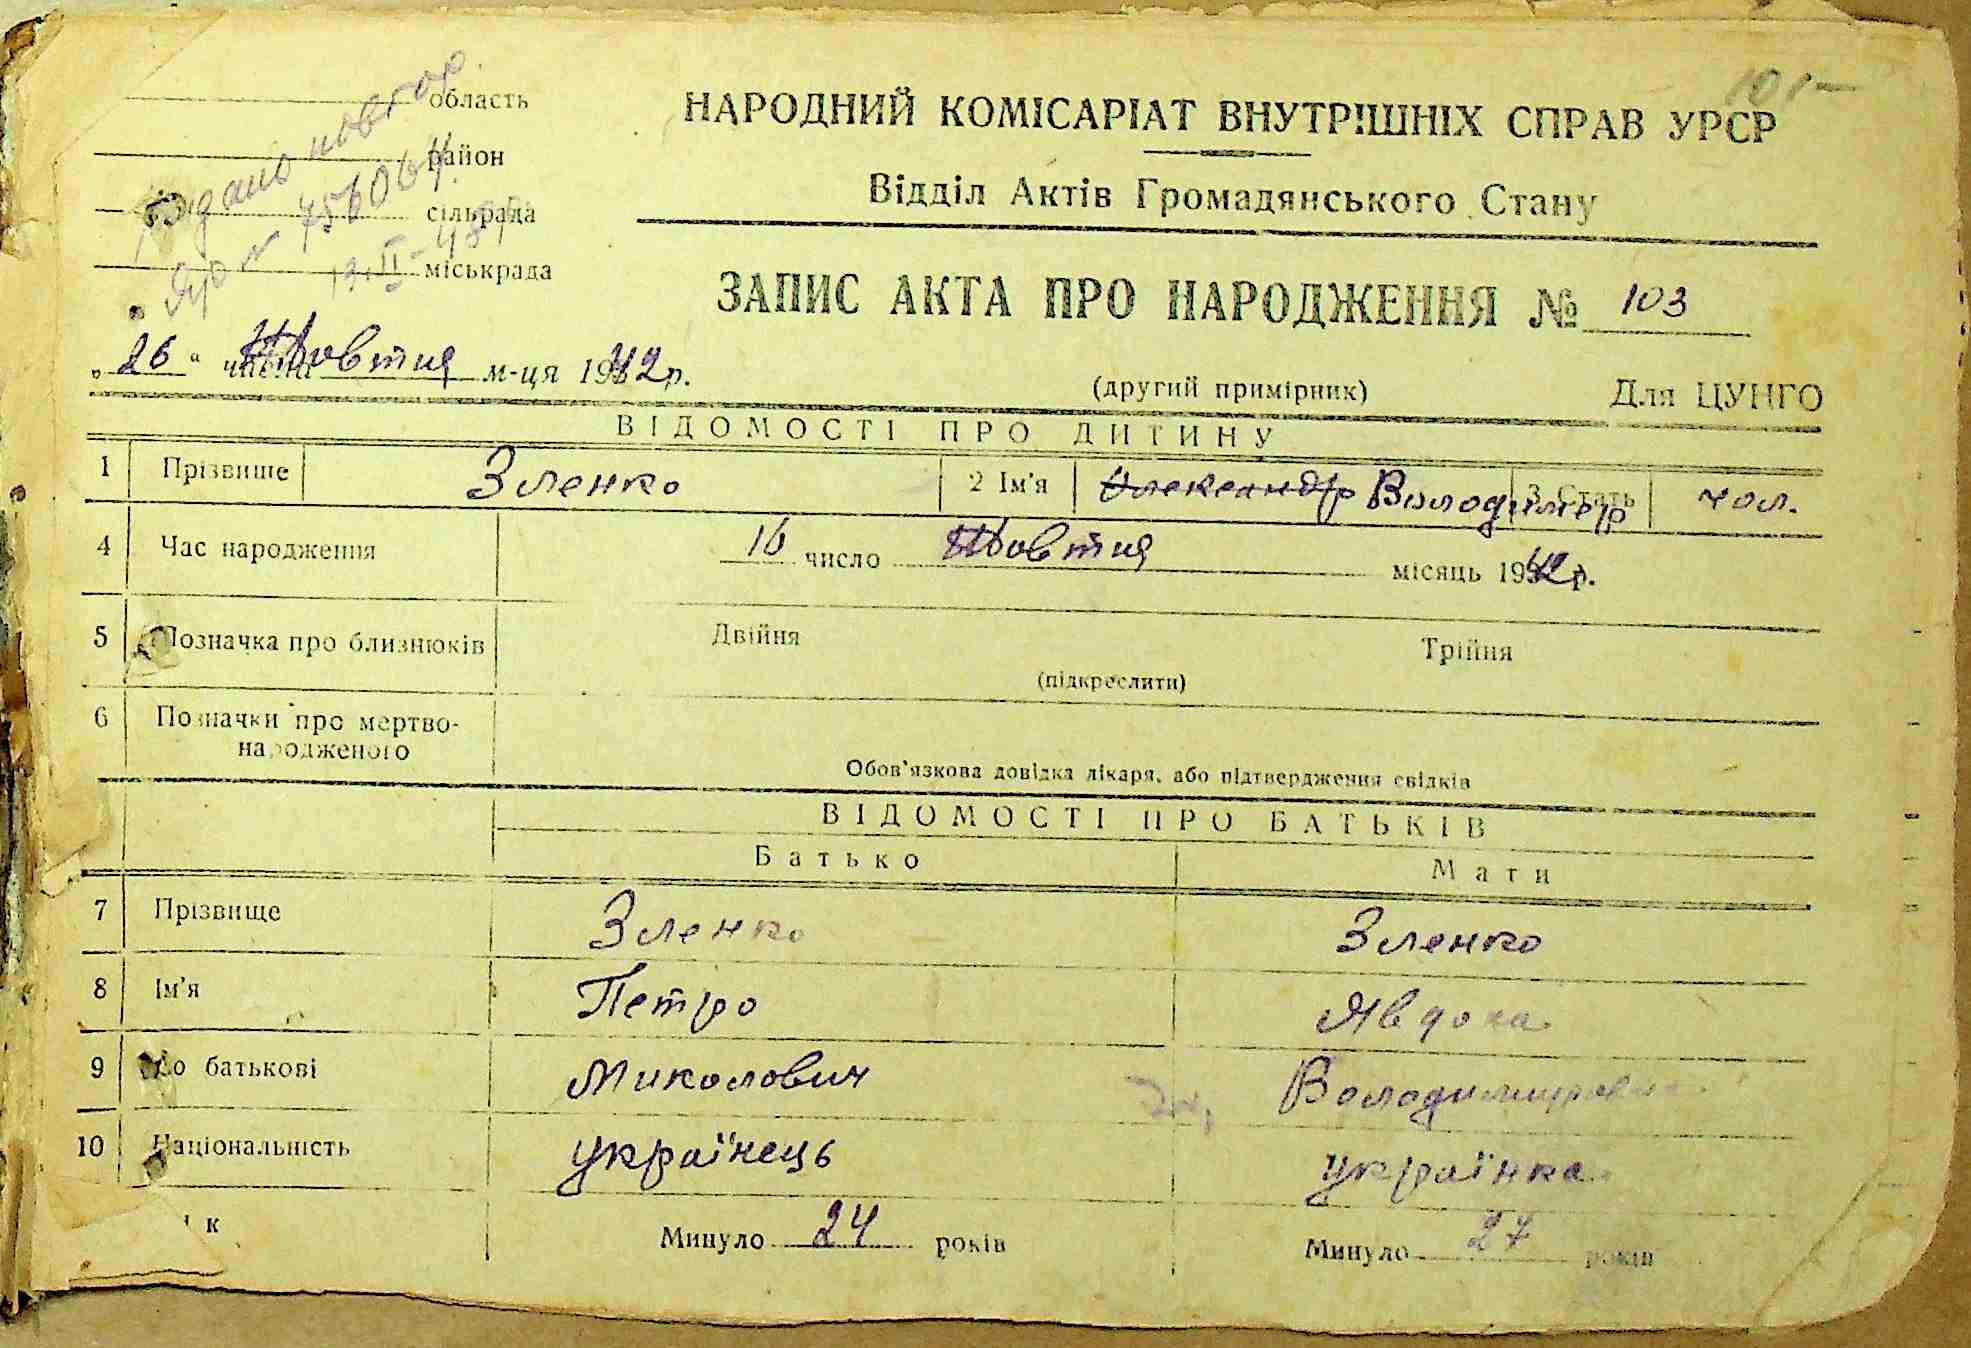 101-
Видано повтор.
№ 756064
область
район
сільрада
міськрада
НАРОДНИЙ КОМІСАРІАТ ВНУТРІШНІХ СПРАВ УРСР
Відділ Актів Громадянського Стану
ЗАПИС АКТА ПРО НАРОДЖЕННЯ № 103
„26“ числа Жовтня м-ця 1942 р.
(другий примірник) Для ЦУНГО
ВІДОМОСТІ ПРО ДИТИНУ
1 Прізвище Зленко 2 Ім'я Олександр Володимір 3 Стать чол.
4 Час народження 16 число Жовтня місяць 1942 р.
5 Позначка про близнюків Двійня Трійня
(підкреслити)
6 Позначки про мертво-
народженого
Обов'язкова довідка лікаря, або підтвердження свідків
ВІДОМОСТІ ПРО БАТЬКІВ
Батько Мати
7 Прізвище Зленко Зленко
8 Ім'я Петро Явдоха
9 По батькові Миколович Володимировна
10 Національність українець українка
ік Минуло 24 років Минуло 27 років